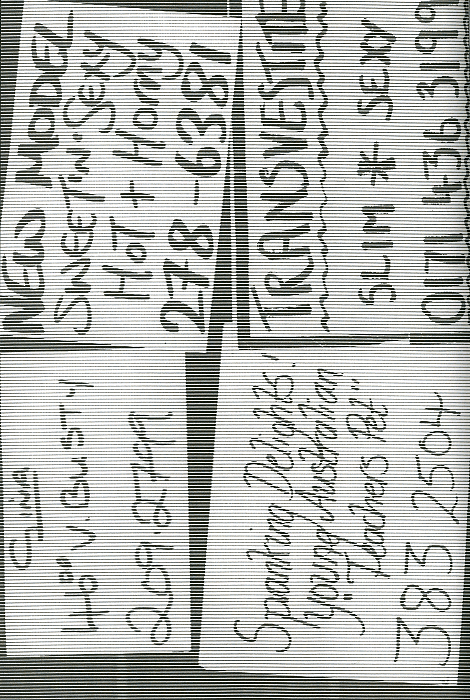 NEW MODEL
SWEET 'N' SEXY
HOT + Horny
278-6381
TRANSVESTITE
SLIM * SEXY
0171 436 3199
Slim
40" V. BUSTY
Spanking Delights!
young Australian
"Teachers Pet"
383 2504